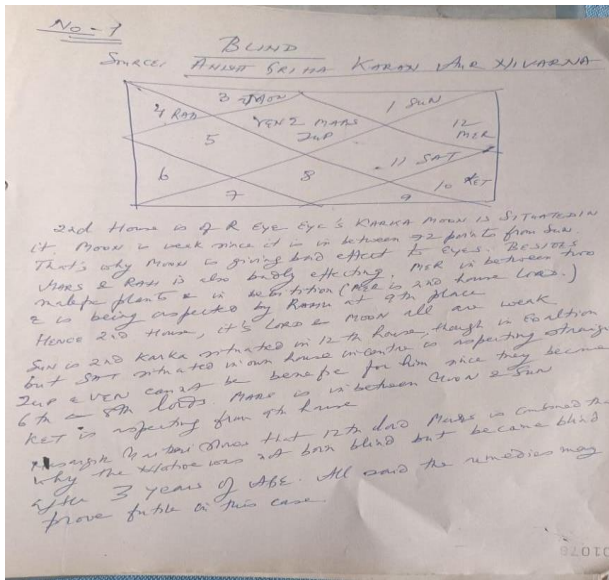 No - 7
BLIND
SOURCE: ANISHT GRIHA KARAN AUR NIVARNA
3 MOON
1 SUN
4 RAH
VEN 2 MARS
JUP
12
MER
5
11 SAT
6
8
10 KET
7
9
2nd House is of R Eye Eye's KARKA MOON IS SITUATED IN
it. MOON is weak since it is in between 72 points from Sun.
That's why Moon is giving bad effect to EYES. BESIDES
MARS & RAH is also badly effecting. MER in between two
malefic plants & in debilition (MER is 2nd house LORD.)
& is being aspected by RAHU at 9th place
HENCE 2nd House, it's LORD & MOON all are weak.
SUN is 2nd Karka situated in 12th house, though in Exaltion
but SAT situated in own house in centre is aspecting straight
JUP & VEN cannot be benefic for him since they became
6th & 8th lords. MARS is in between MOON & SUN
KET is aspecting from 9th house
that 12th lord MARS is
why the Native was not born blind but became blind
after 3 years of AGE. All said the remedies may
prove futile in this case.
01076